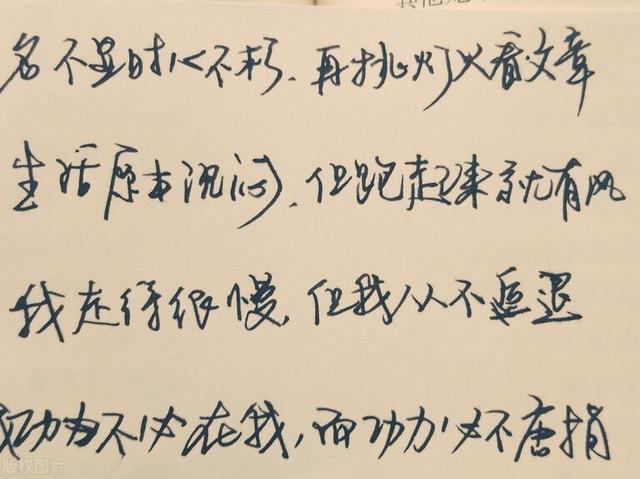 其他
名不显时心不朽,再挑灯火看文章
生活原本沉闷,但跑起来就有风
我走得很慢,但我从不退
成功不必在我,而功力必不唐捐
版权图片